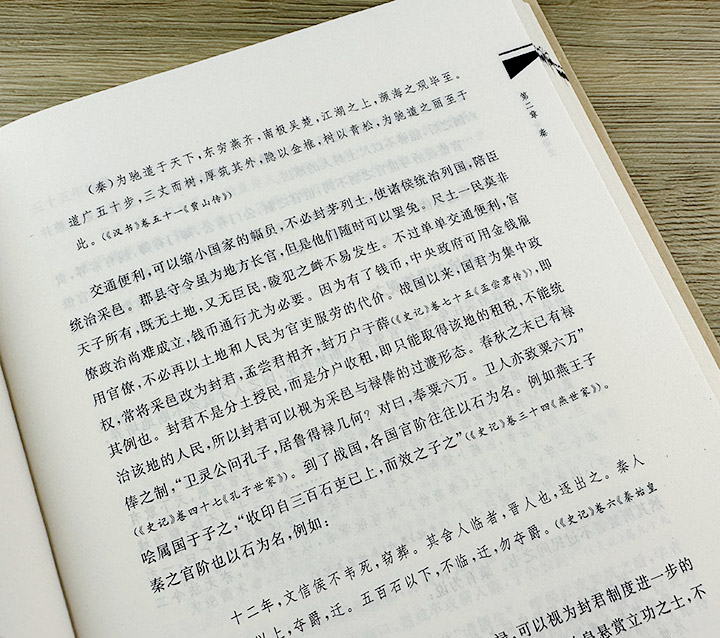 第二章 秦
(秦)为驰道于天下,东穷燕齐,南极吴楚,江湖之上,濒海之观毕至。
道广五十步,三丈而树,厚筑其外,隐以金椎,树以青松,为驰道之丽至于
此。(《汉书》卷五十一《贾山传》)
交通便利,可以缩小国家的幅员,不必封茅列土,使诸侯统治列国,陪臣
统治采邑。郡县守令虽为地方长官,但是他们随时可以罢免。尺土一民莫非
天子所有,既无土地,又无臣民,陵犯之衅不易发生。不过单单交通便利,官
僚政治尚难成立,钱币通行尤为必要。因为有了钱币,中央政府可用金钱雇
用官僚,不必再以土地和人民为官吏服劳的代价。战国以来,国君为集中政
权,常将采邑改为封君,孟尝君相齐,封万户于薛(《史记》卷七十五《孟尝君传》),即
其例也。封君不是分土授民,而是分户收租,即只能取得该地的租税,不能统
治该地的人民,所以封君可以视为采邑与禄俸的过渡形态。春秋之末已有禄
俸之制,“卫灵公问孔子,居鲁得禄几何?对曰,奉粟六万。卫人亦致粟六万”
(《史记》卷四十七《孔子世家》)。到了战国,各国官阶往往以石为名。例如燕王子
哙属国于子之,“收印自三百石吏已上,而效之子之”(《史记》卷三十四《燕世家》)。
秦之官阶也以石为名,例如:
十二年,文信侯不韦死,窃葬。其舍人临者,晋人也,逐出之。秦人
以上,夺爵,迁。五百石以下,不临,迁,勿夺爵。(《史记》卷六《秦始皇
禄,可以视为封君制度进一步的
悬赏立功之士,不